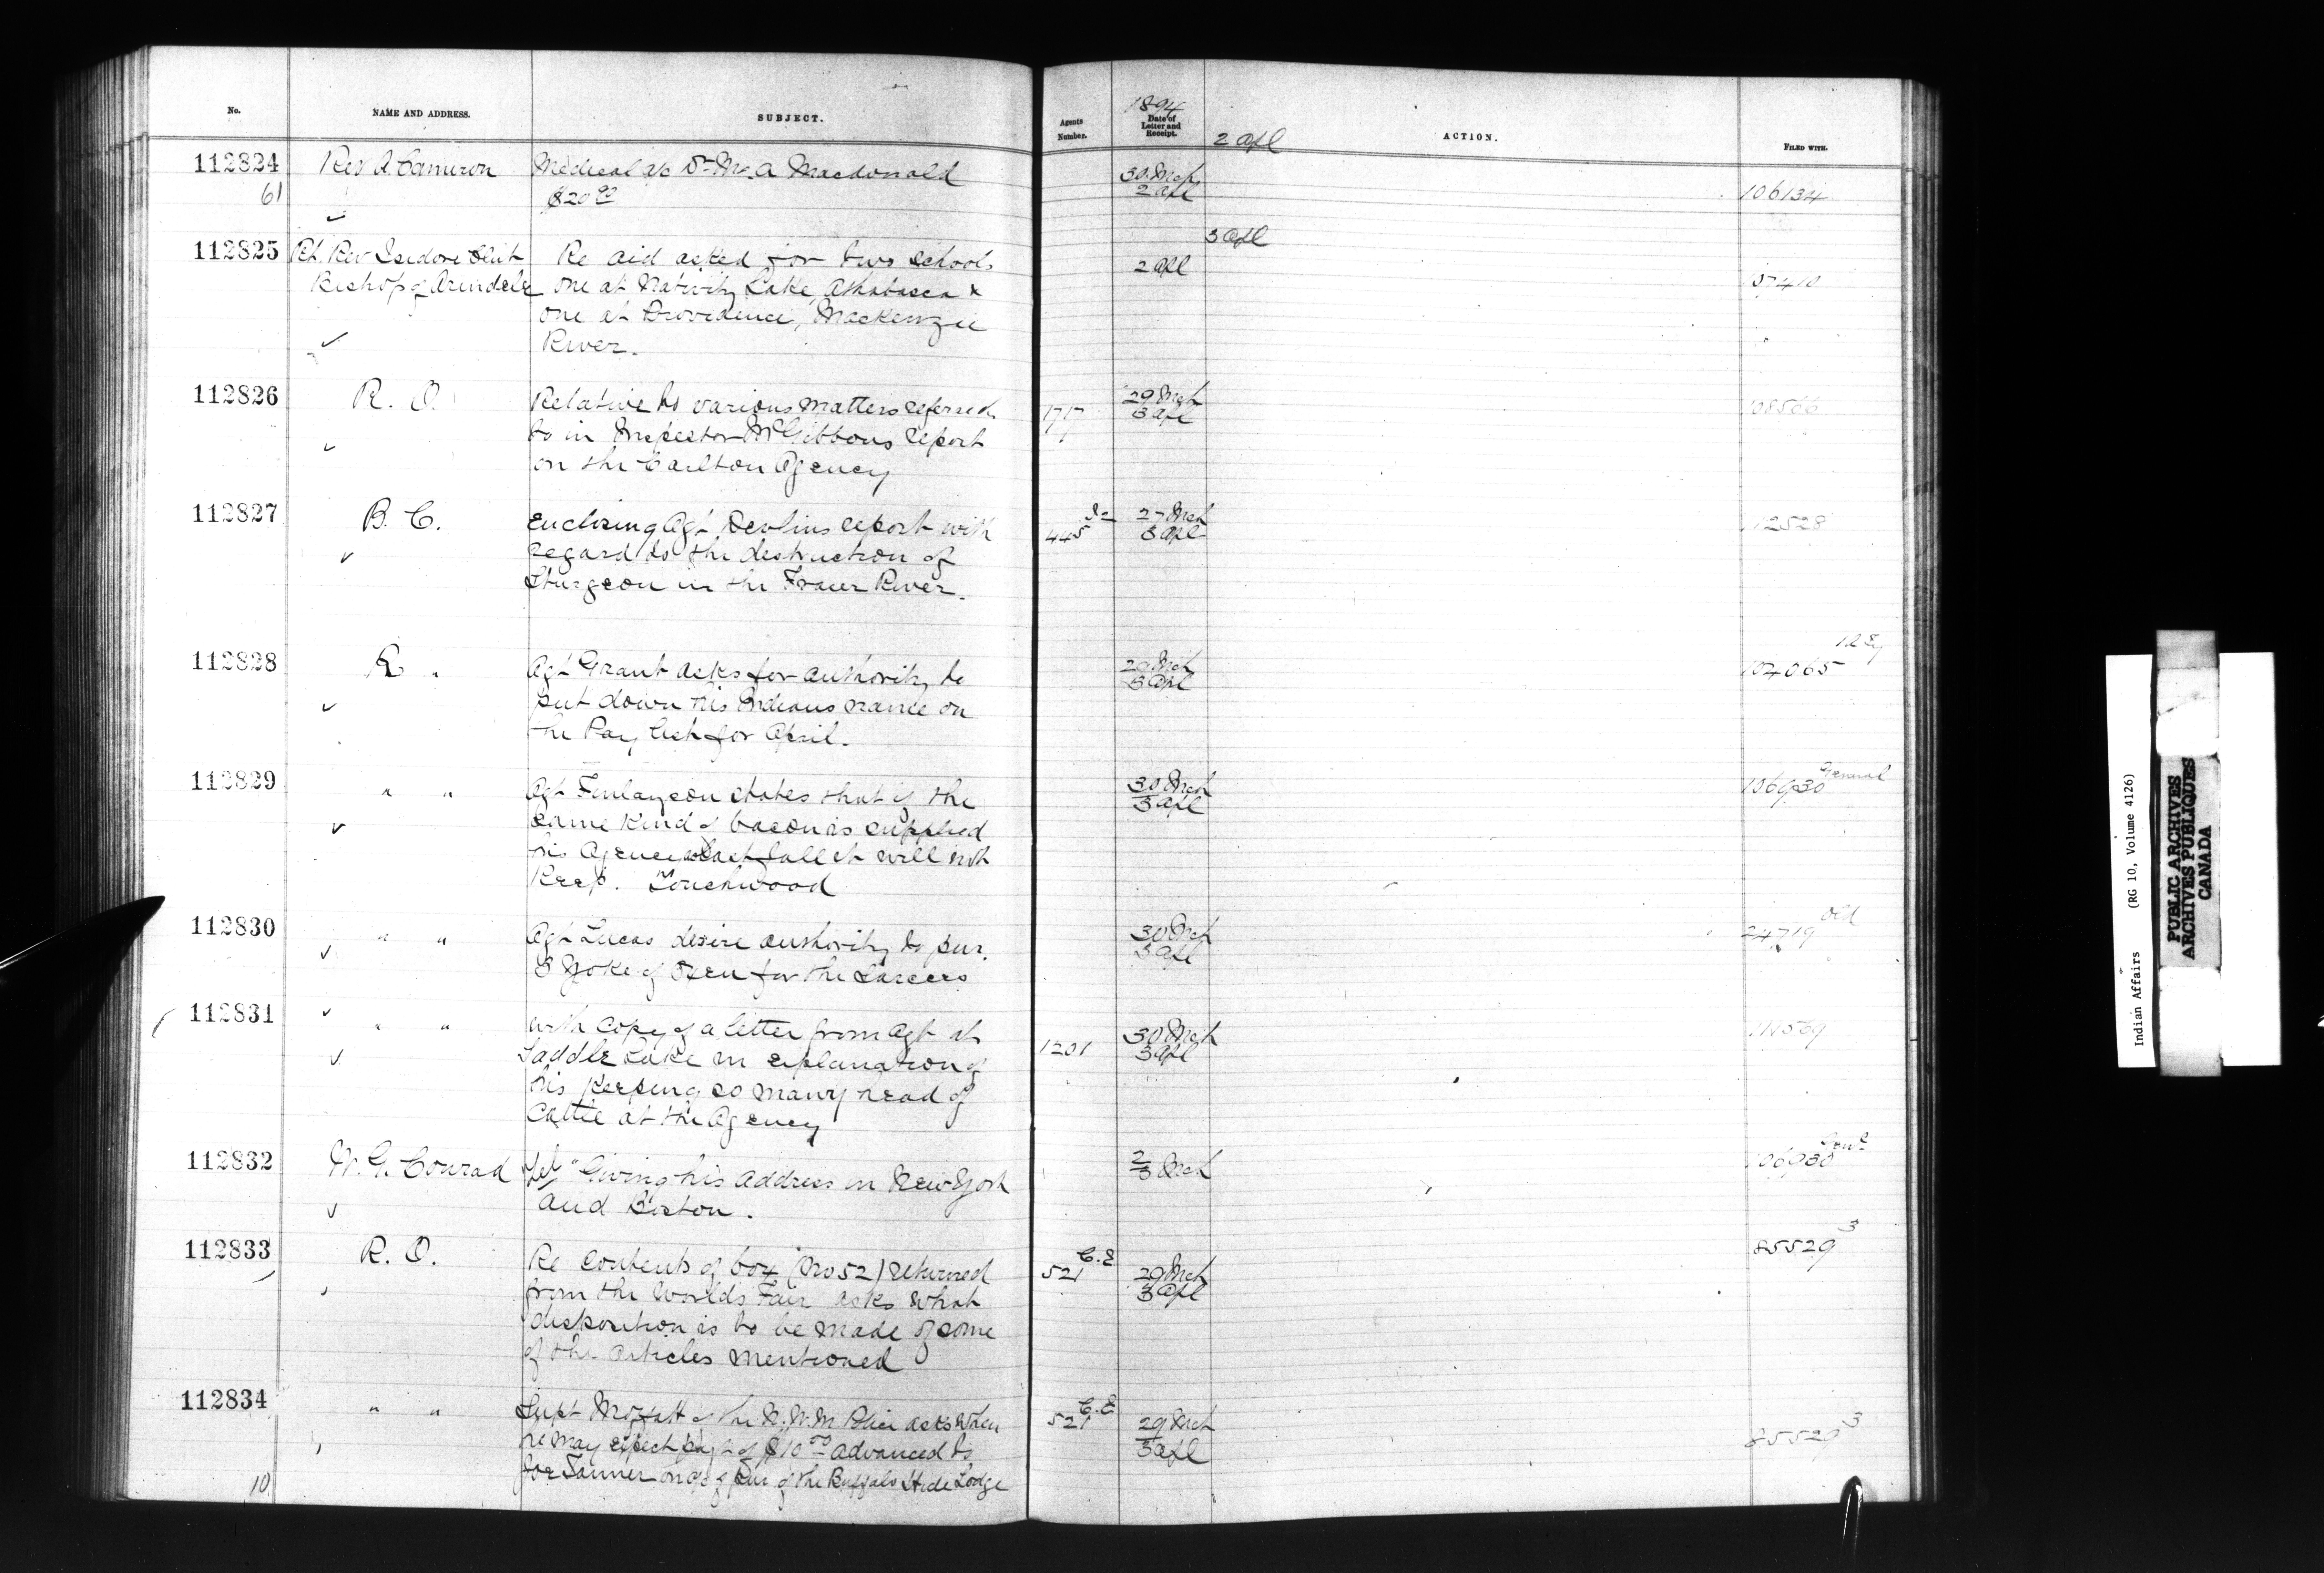 No. NAME AND ADDRESS. SUBJECT. Agents Number. 1894 Date of Letter and Receipt. ACTION. FILED WITH.
2 Apl
112824 Rev A Cameron Medical a/c Dr. A Macdonald 30 Mch 106134
61 $20 00 2 Apl
3 Apl
112825 Rt. Rev Isidore Clut Re aid asked for two schools 2 Apl
Bishop of Arindele one at Nativity Lake, Athabasca &
one at Providence, Mackenzie
River.
112826 R. O. Relative to various matters referred 1717 29 Mch 108566
to in Inspector McGibbons report 3 Apl
on the Carlton Agency
112827 B. C. Enclosing Agt Devlins report with 445 27 Mch 112528
regard to the destruction of 3 Apl
Sturgeon in the Fraser River.
112828 R " Agt Grant asks for authority to 29 Mch 104065
put down his Indians name on 3 Apl
the Pay list for April.
112829 " " Agt Finlayson states that if the 30 Mch 106930 General
same kind of bacon is supplied 3 Apl
his Agency last fall it will not
Keep. Touchwood
112830 " " Agt Lucas desire authority to pur. 30 Mch 24719 Old
3 Yoke of Oxen for the Sarcees 3 Apl
112831 " " with copy of a letter from Agt at 1201 30 Mch 111569
Saddle Lake in explanation of 3 Apl
his keeping so many head of
Cattle at the Agency
112832 W. G. Conrad Tel "Giving his address in New York 2/3 Mch 106930
and Boston.
112833 R. O. Re Contents of box (No 52) returned 521 C.E 29 Mch 85529 3
from the Worlds Fair asks what 3 Apl
disposition is to be made of some
of the articles mentioned
112834 " " Supt Moffatt of the N.W.M. Police asks when 521 C.E 29 Mch 85529 3
he may expect payt of $10 00 advanced to 3 Apl
10 Joe Tanner on a/c of pur of the Buffalo Hide Lodge
Indian Affairs (RG 10, Volume 4126)
PUBLIC ARCHIVES
ARCHIVES PUBLIQUES
CANADA